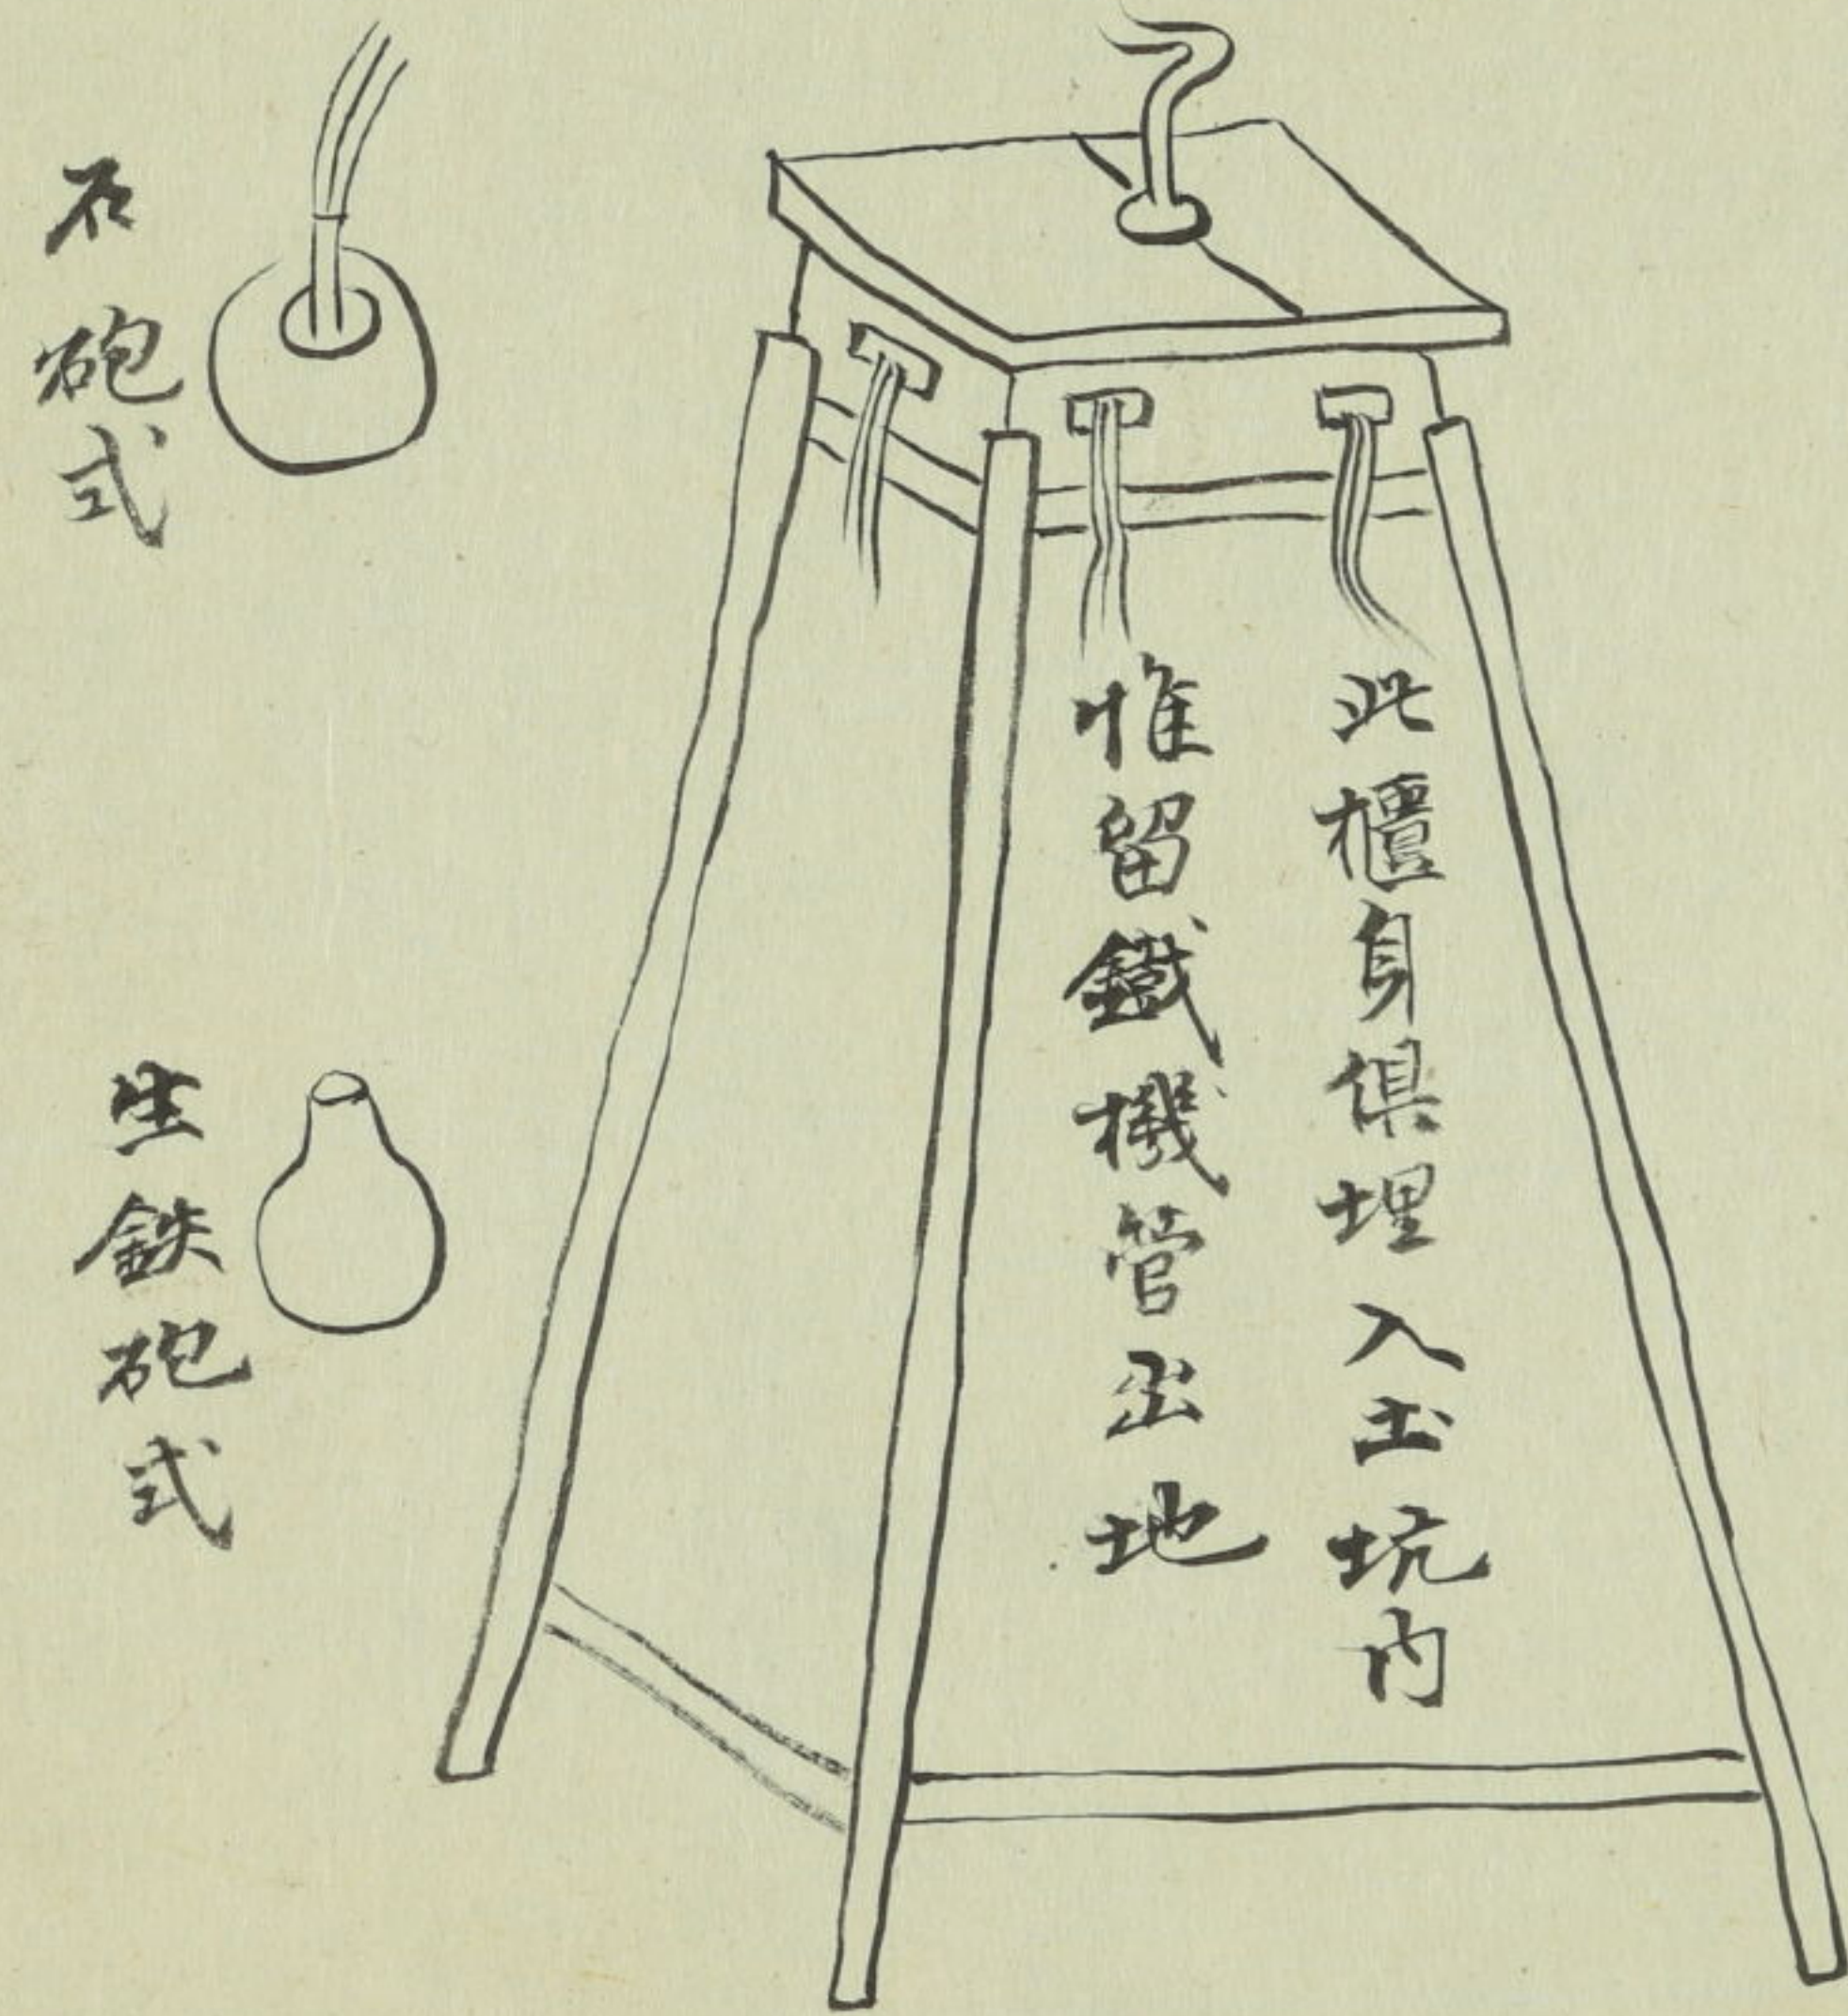 此櫃身俱埋入土坑内
惟留鐵機管出地
石砲式
生鉄砲式